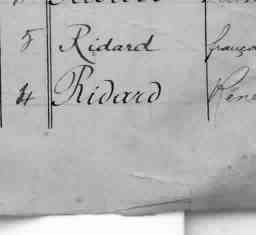 5 Ridard franço
4 Ridard Réne